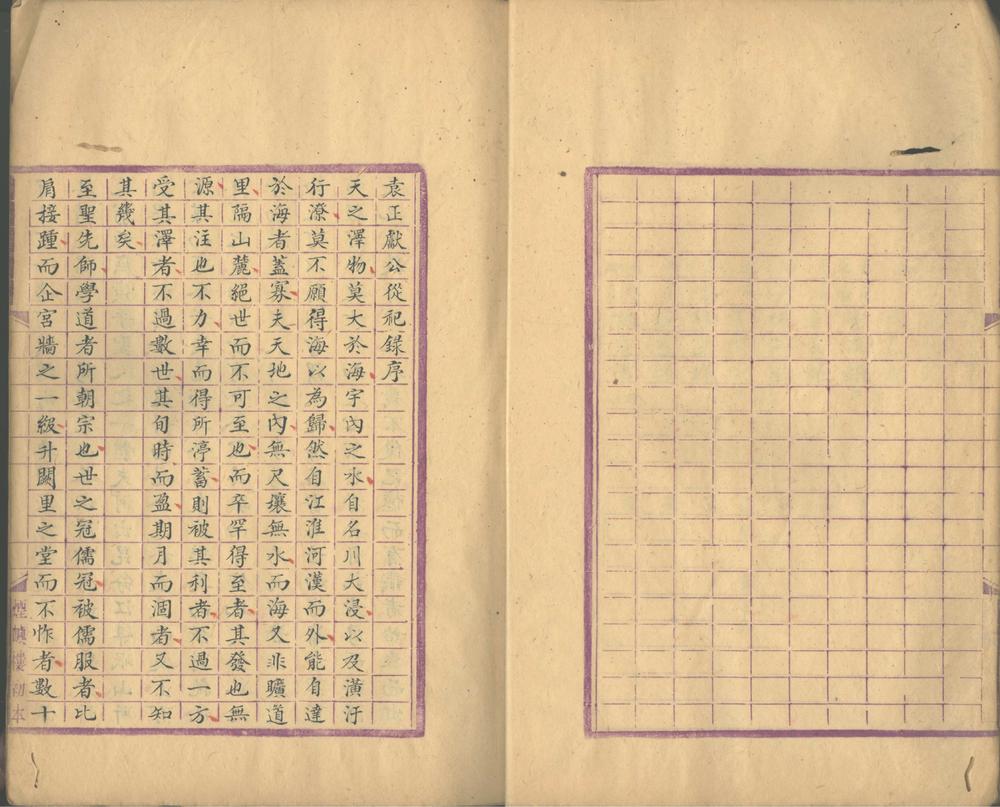 袁正獻公從祀録序
天之澤物莫大於海宇內之水自名川大浸以及潢汙
行潦莫不願得海以為歸然自江淮河漢而外能自達
於海者蓋寡夫天地之內無尺壤無水而海又非曠道
里隔山麓絕世而不可至也而卒罕得至者其發也無
源其注也不力幸而得所渟蓄則被其利者不過一方
受其澤者不過數世其旬時而盈期月而涸者又不知
其幾矣
至聖先師學道者所朝宗也世之冠儒冠被儒服者比
肩接踵而企宮牆之一級升闕里之堂而不怍者數十
煙嶼樓初本